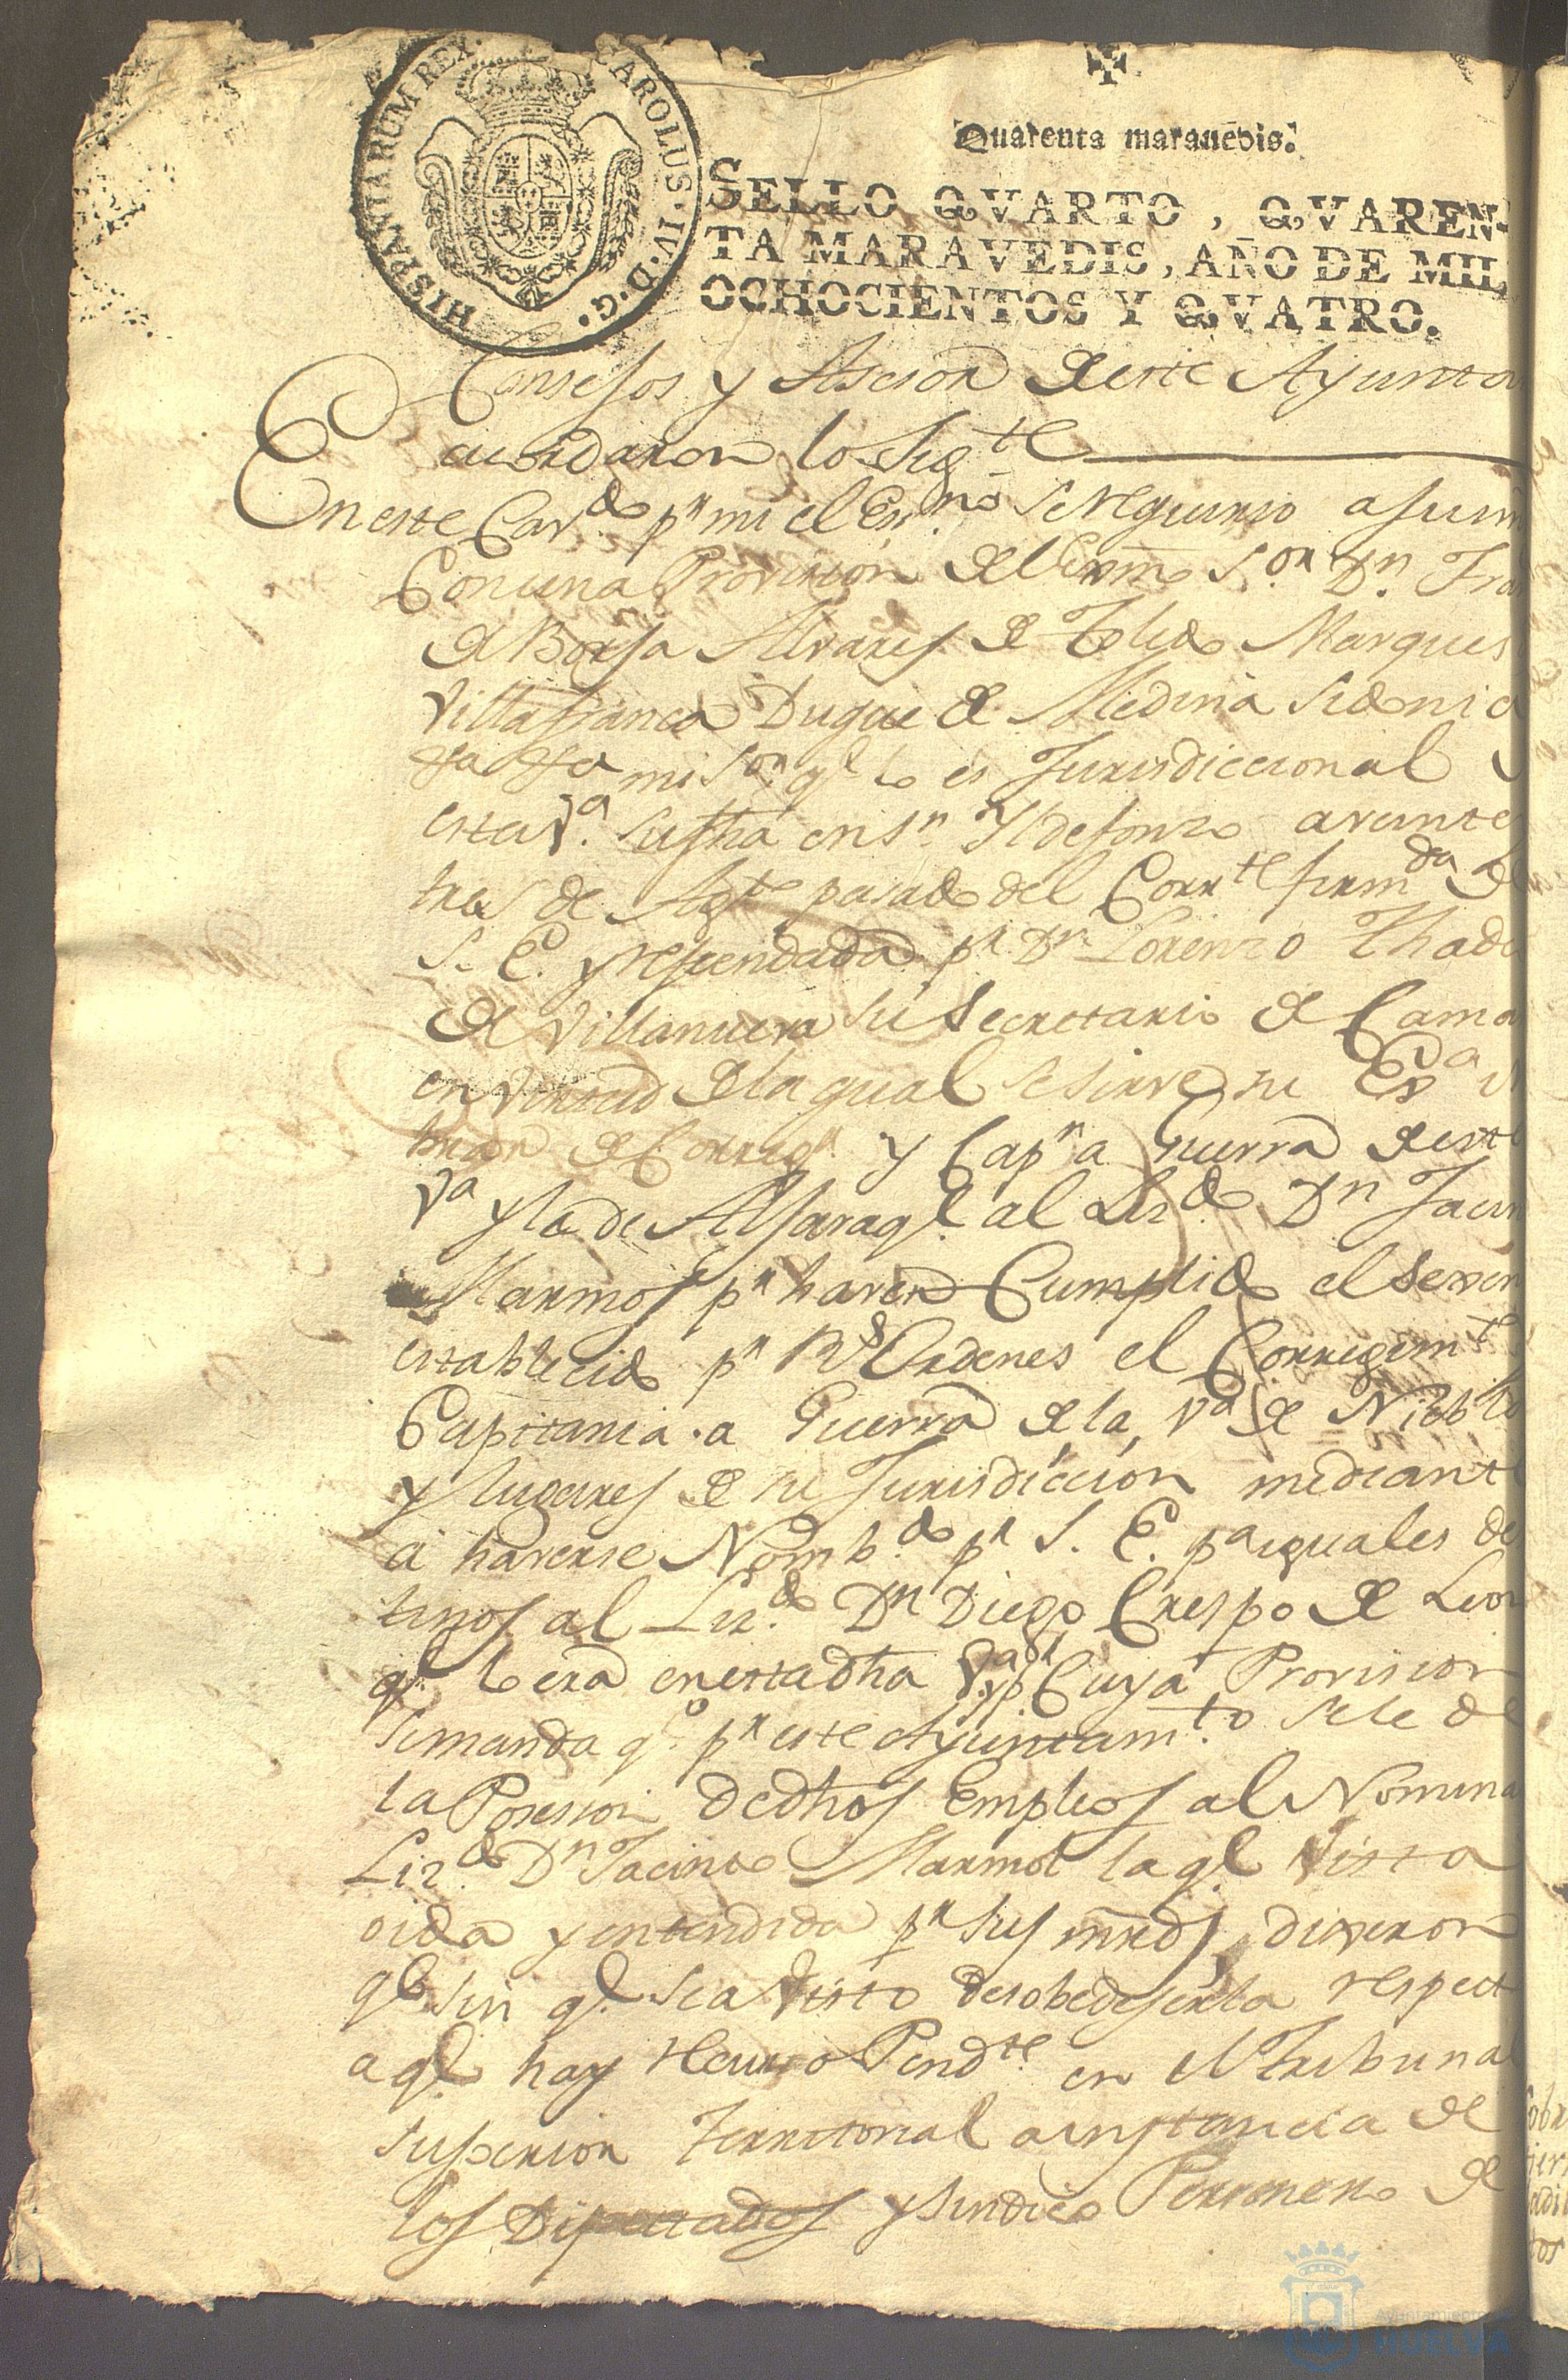 HISPANIARUM REX. CAROLUS·IV·D·G·
Quarenta marauedis.
SELLO QVARTO, QVAREN-
TA MARAVEDIS, AÑO DE MIL
OCHOCIENTOS Y QVATRO.
Consejos y Asesor de este Ayunta
cuordaron lo Sigte
En este Cavdo pr mi el Esno se
Con una Provision del Exmo Sor Dn Fra
de Borja Alvares de Toledo Marques
Villafranca Duque de Medina Sidonia
mi Sor ql lo es Jurisdiccional
esta Va su fha en Sn Yldefonzo a veinte
tres de Agto pasado del Corrte firmda de
S. E. y refrendada pr Dn Lorenzo Thade
de Villanueva su Secretario de Cama
en virtud de la qual se sirve su Exa
de Corregr y Capn a guerra de esta
Va y la de Aljaraql al Lizdo Dn Jacin
Marmol pr haver Cumplido el Sexen
establecido pr Rs Ordenes el Corregimto
Capitania a Guerra de la Va de Niebla
y lugares de su Jurisdiccion mediante
a haverse Nombdo pr S. E. pa iguales des
tinos al Lizdo Dn Diego Crespo de Leon
ql lo era en esta dha Va pr Cuya Provision
se manda qe pr este Ayuntamto se le de
la Posesion de dhos Empleos al Nomina
Lizdo Dn Jacinto Marmol la ql Vista
oida y entendida pr sus mrds, dixeron
qe sin ql sea Visto desobedeserla respect
a ql hay Recurso Pendte en el Tribunal
superior Territorial a instancia de
los Diputados y Sindico Perzonero de
Ayuntamiento
HUELVA